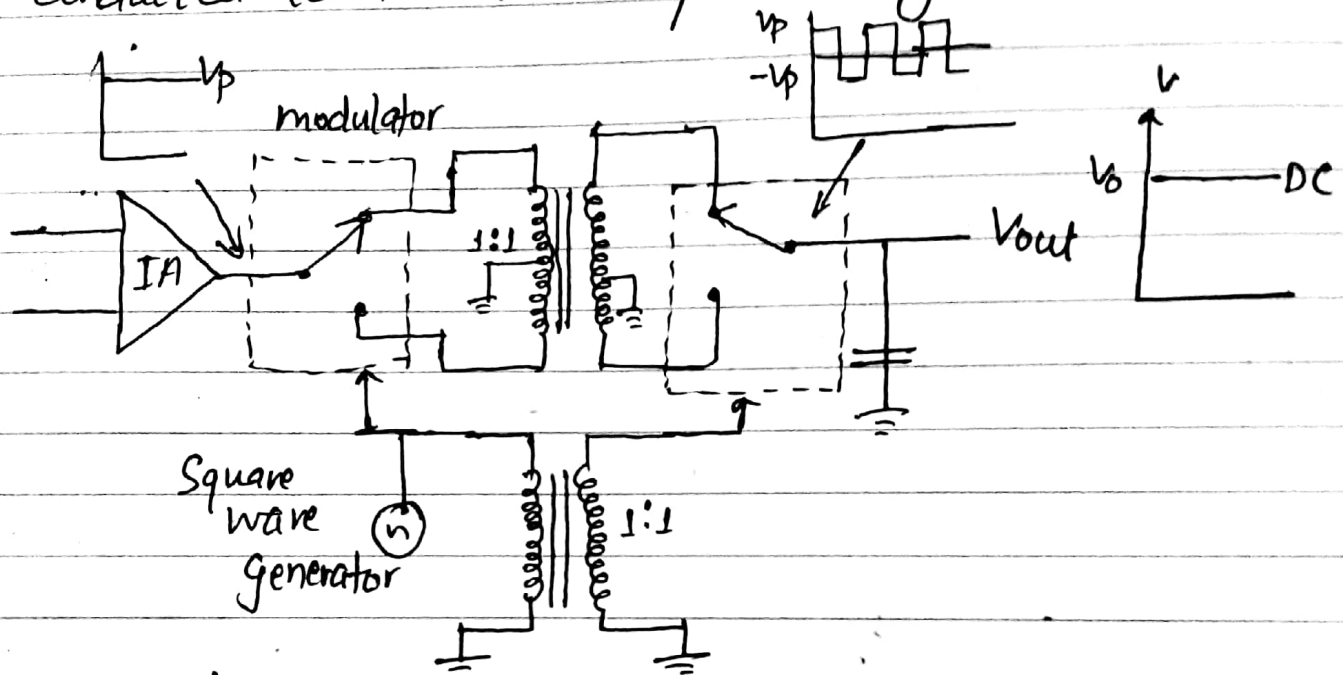 Vp
-Vp
Vp
modulator
V
Vo
DC
IA
1:1
Vout
Square
wave
generator
n
1:1